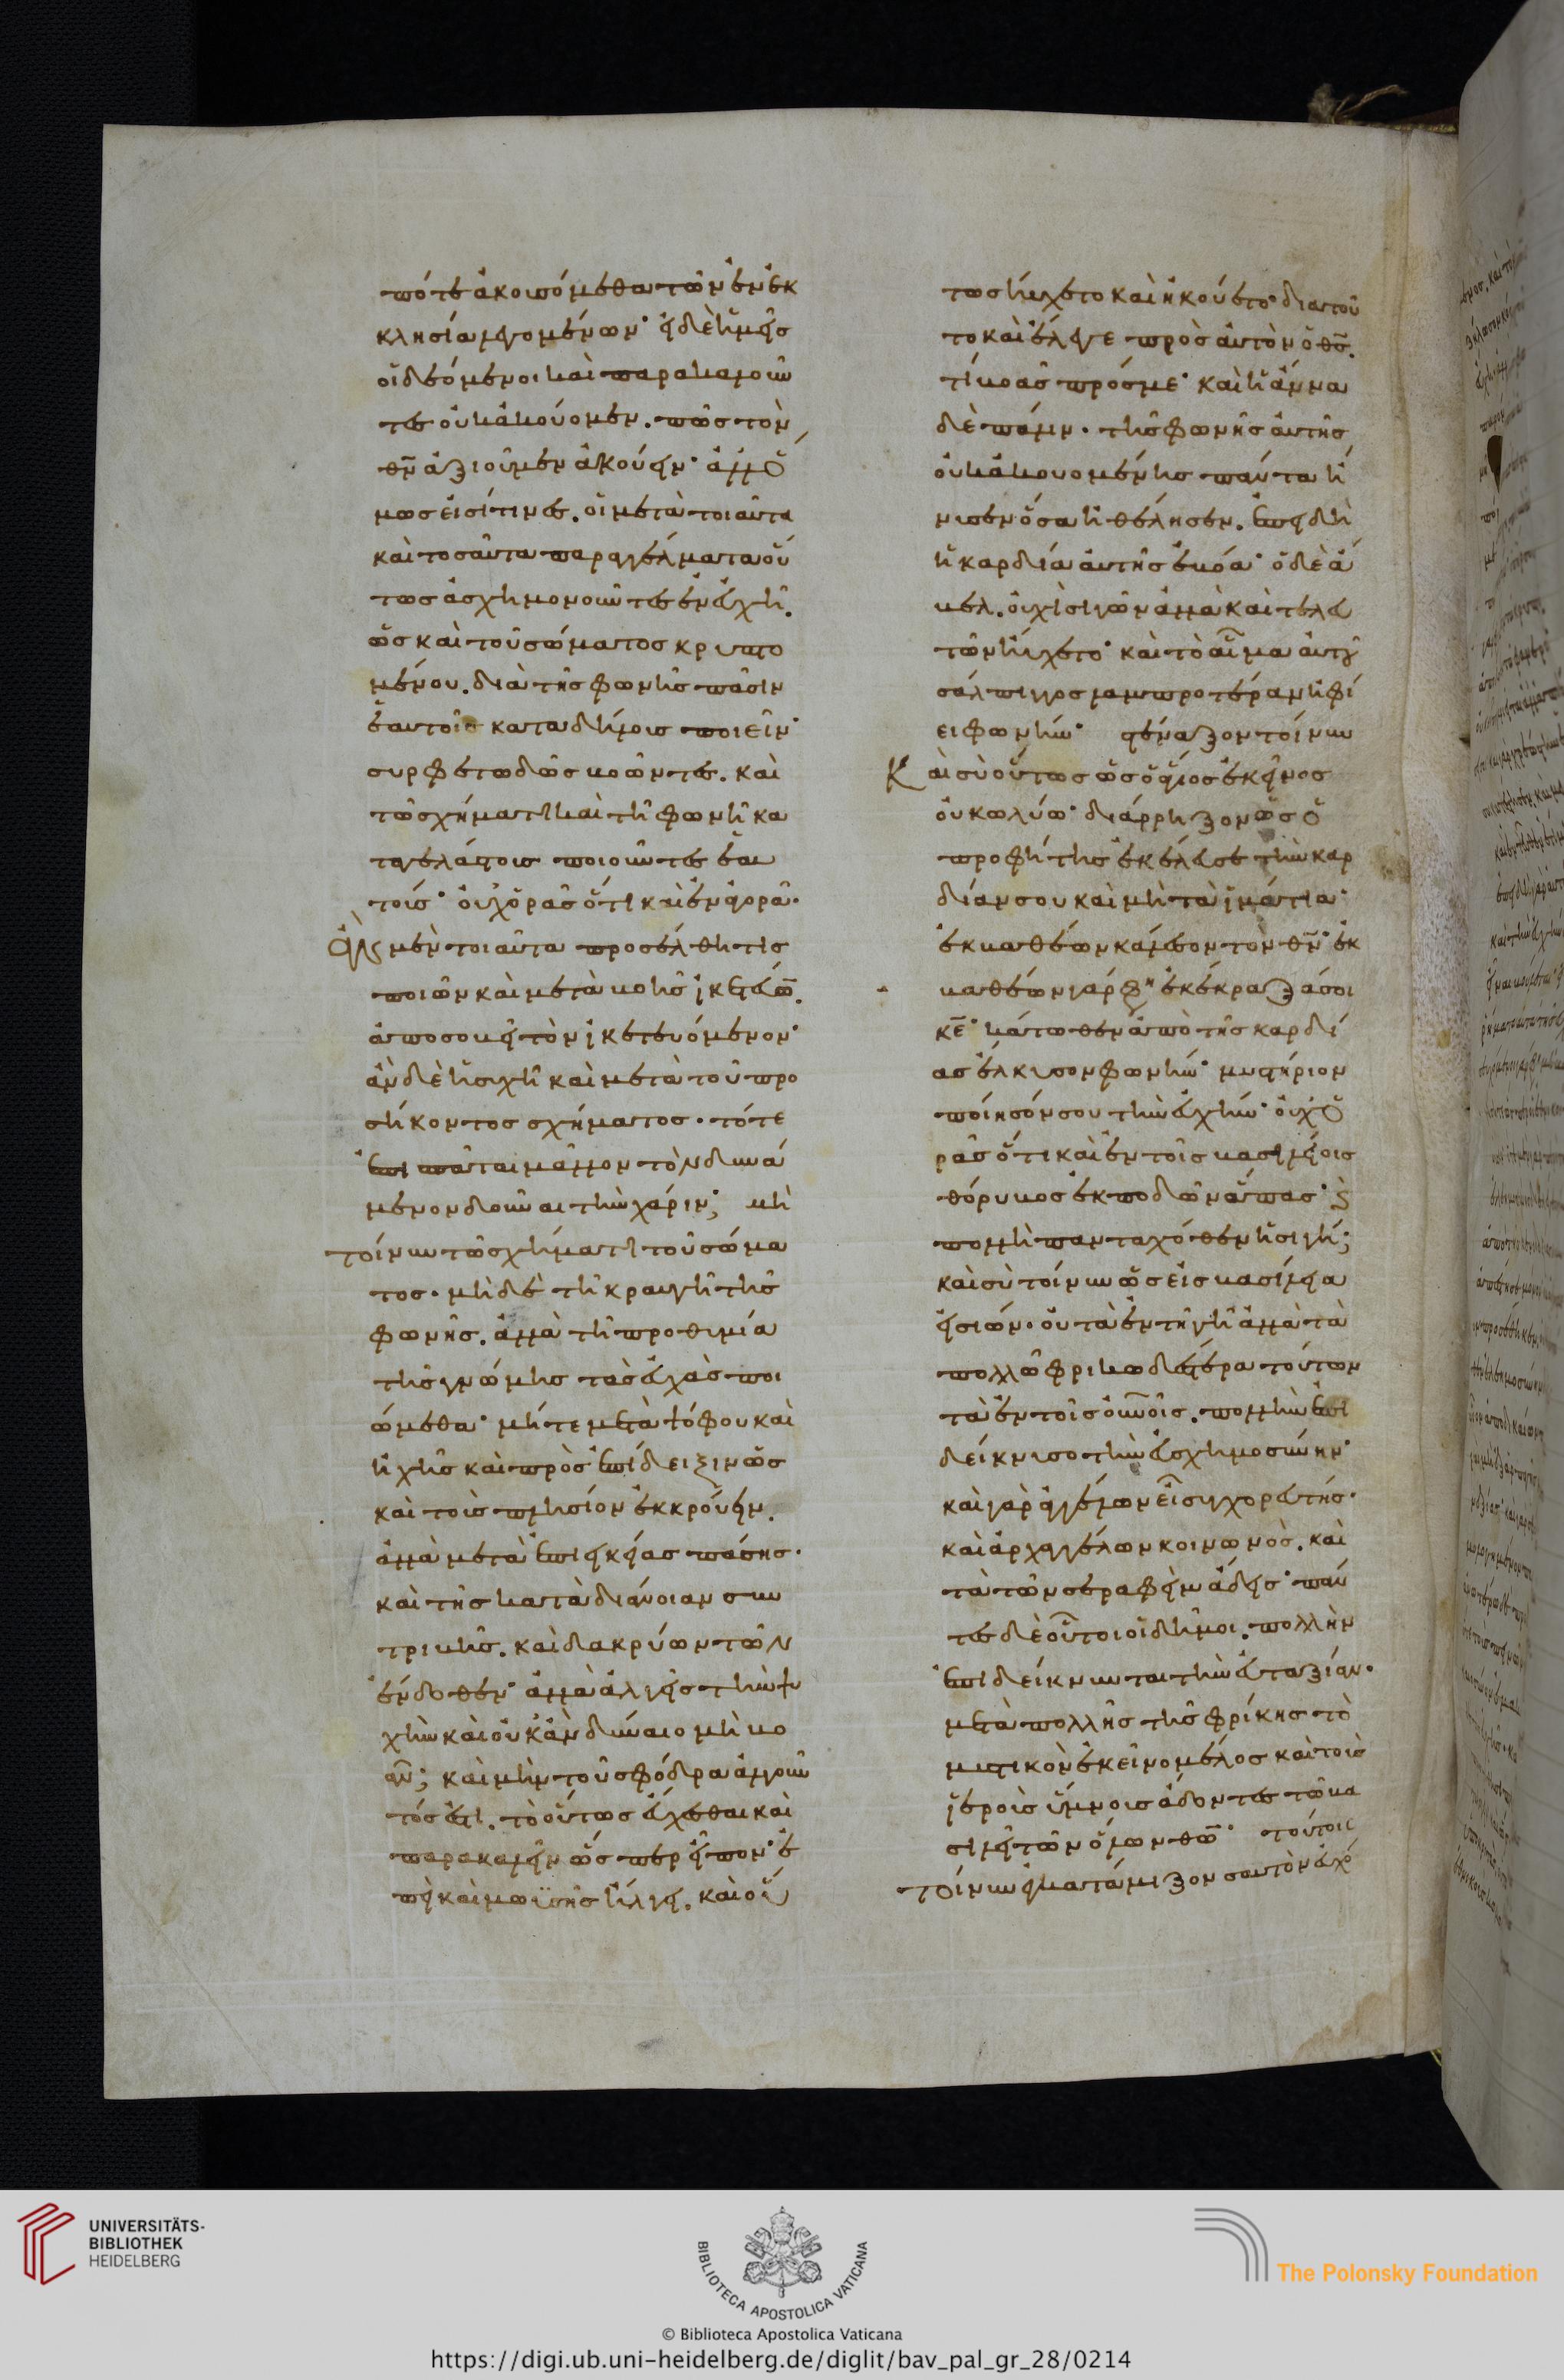 πότε ἀκοπόμεθα τῶν ἐν ἐκ
κλησία λεγομένων· εἰ δὲ ἡμεῖς
οἱ δεόμενοι καὶ παρακαλοῦν
τες οὐκ ἀκούομεν. πῶς τὸν
θν̄ ἀξιοῦμεν ἀκούειν· ἀλλ' ὅ
μως εἰσί τινες. οἱ μετὰ τοιαῦτα
καὶ τοσαῦτα παραγγέλματα οὕ
τως ἀσχημονοῦντες ἐν εὐχῆ.
ὡς καὶ τοῦ σώματος κρυπτο
μένου. διὰ τῆς φωνῆς πᾶσιν
ἑαυτοῖς καταδήλοις ποιεῖν·
συρφετωδῶς βοῶντες. καὶ
τῶ σχήματι καὶ τῆ φωνῆ κα
ταγελάστοις ποιοῦντες ἑαυ
τοῖς· οὐχ ὁρᾶς ὅτι καὶ ἐν ἀγορᾶ.
ἂν μὲν τοιαῦτα προσέλθη τὶς
ποιῶν καὶ μετὰ βοῆς ἱκετεύων.
ἀποσοβεῖ τὸν ἱκετευόμενον·
ἂν δὲ ἡσυχῆ καὶ μετὰ τοῦ προ
σήκοντος σχήματος. τότε
ἐπισπᾶται μᾶλλον τὸν δυνά
μενον δοῦναι τὴν χάριν; μὴ
τοίνυν τῶ σχήματι τοῦ σώμα
τος. μὴ δὲ τῆ κραυγῆ τῆς
φωνῆς. ἀλλὰ τῆ προθυμία
τῆς γνώμης τὰς εὐχὰς ποι
ώμεθα· μήτε μετὰ ψόφου καὶ
ἠχῆς καὶ πρὸς ἐπίδειξιν ὡς
καὶ τοὶς πλησίον ἐκκρούειν.
ἀλλὰ μετὰ ἐπιεικείας πάσης.
καὶ τῆς κατὰ διάνοιαν συν
τριβῆς. καὶ δακρύων τῶν
ἔνδοθεν· ἀλλὰ ἀλγεῖς τὴν ψυ
χὴν καὶ οὐκ ἂν δύναιο μὴ βο
ᾶν; καὶ μὴν τοῦ σφόδρα ἀλγοῦν
τός ἐστι. τὸ οὕτως εὔχεσθαι καὶ
παρακαλεῖν ὥσπερ εἶπον· ἐ
πεὶ καὶ μωϋσῆς ἤλγει. καὶ οὕ
τως ηὔχετο καὶ ἠκούετο· διατοῦ
το καὶ ἔλεγε πρὸς αὐτὸν ὁ θς̄.
τί βοᾶς πρός με· καὶ ἡ ἄννα
δὲ πάλιν. τῆς φωνῆς αὐτῆς
οὐκ ἀκουομένης πάντα ἤ
νυσεν ὅσα ἠθέλησεν. ἐπειδὴ
ἡ καρδία αὐτῆς ἐβόα· ὁ δὲ ἄ
βελ. οὐχὶ σιγῶν ἀλλὰ καὶ τελευ
τῶν ηὔχετο· καὶ τὸ αἷμα αὐτοῦ
σάλπιγγος λαμπροτέραν ἠφί
ει φωνήν· στέναξον τοίνυν
Καὶ σὺ οὕτως ὡς ὁ ἅγιος ἐκεῖνος
οὐ κωλύω· διάρρηξον ὡς ὁ
προφήτης ἐκέλευσε τὴν καρ
δίαν σου καὶ μὴ τὰ ἱμάτια·
ἐκ βαθέων κάλεσον τὸν θν̄· ἐκ
βαθέων γάρ φη ἐκέκραξά σοι
κε̄· κάτωθεν ἀπὸ τῆς καρδί
ας ἕλκυσον φωνήν· μυστήριον
ποίησόν σου τὴν εὐχήν· οὐχ ὁ
ρᾶς ὅτι καὶ ἐν τοῖς βασιλείοις
θόρυβος ἐκποδὼν ἅπας· καὶ
πολλὴ πανταχόθεν ἡ σιγή;
καὶ σὺ τοίνυν ὡς εἰς βασίλεια
εἰσιών. οὐ τὰ ἐν τῆ γῆ ἀλλὰ τὰ
πολλῶ φρικωδέστερα τούτων
τὰ ἐν τοῖς οὐνοῖς. πολλὴν ἐπι
δείκνυσο τὴν εὐσχημοσύνην·
καὶ γὰρ ἀγγέλων εἶ συγχορευτής.
καὶ ἀρχαγγέλων κοινωνὸς. καὶ
τὰ τῶν σεραφὶμ ἄδεις· πάν
τες δὲ οὗτοι οἱ δῆμοι. πολλὴν
ἐπιδείκνυνται τὴν εὐταξίαν.
μετὰ πολλῆς τῆς φρίκης τὸ
μυστικὸν ἐκεῖνο μέλος καὶ τοὶς
ἱεροὶς ὕμνοις άδοντες τῶ βα
σιλεῖ τῶν ὅλων θῶ· τούτοις
τοίνυν καταμιξον σαυτὸν εὐχό
UNIVERSITÄTS-
BIBLIOTHEK
HEIDELBERG
BIBLIOTECA APOSTOLICA VATICANA
The Polonsky Foundation
© Biblioteca Apostolica Vaticana
https://digi.ub.uni-heidelberg.de/diglit/bav_pal_gr_28/0214